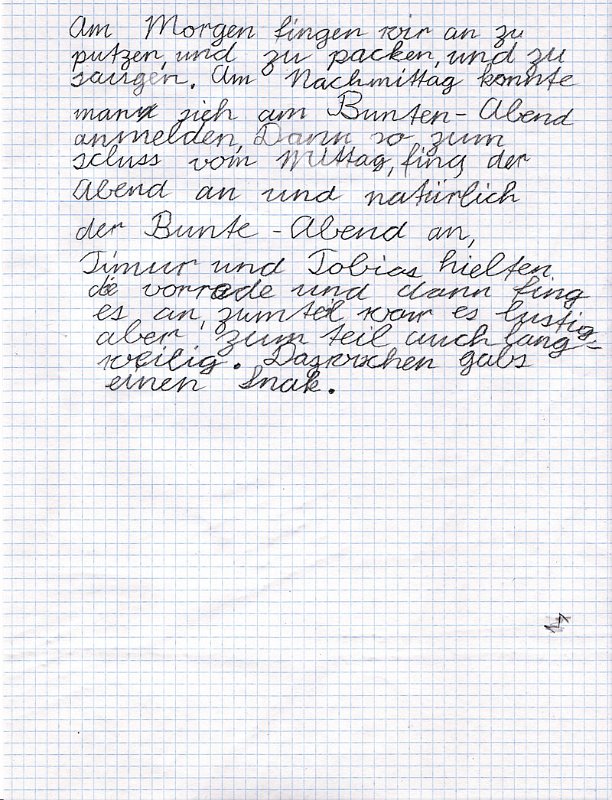 Am Morgen fingen wir an zu
putzen, und zu packen, und zu
saugen. Am Nachmittag konnte
mann sich am Bunten-Abend
anmelden, Dann so zum
scluss vom Mittag, fing der
Abend an und natürlich
der Bunte-Abend an,
Timur und Tobias hielten
die vorrede und dann fing
es an, zumteil war es lustig
aber, zum teil auch lang=
weilig. Dazwischen gabs
einen Snak.